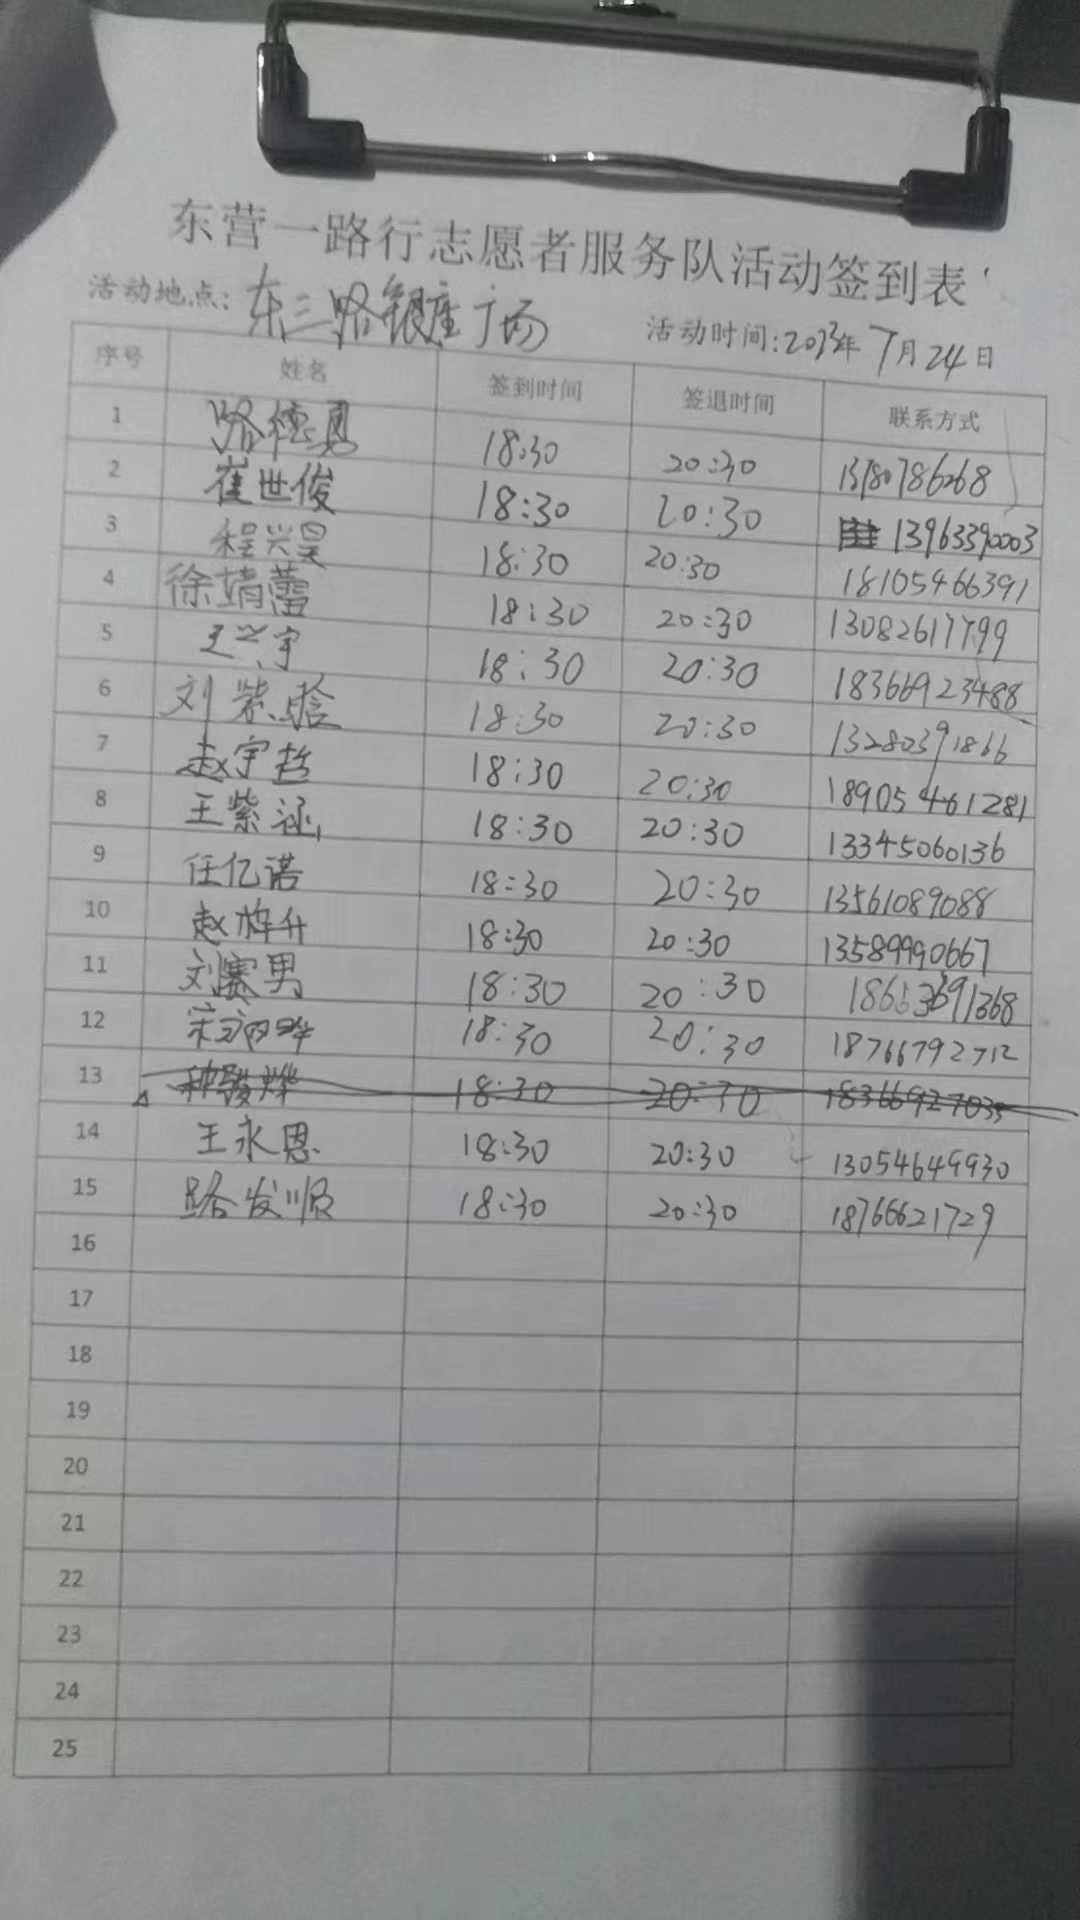 东营一路行志愿者服务队活动签到表
活动地点：东三路银座广场 活动时间：2023年7月24日
序号 姓名 签到时间 签退时间 联系方式
1 路德勇 18:30 20:30 13780786268
2 崔世俊 18:30 20:30 13963390003
3 程兴昊 18:30 20:30 18105466391
4 徐靖蕾 18:30 20:30 13082617799
5 王兴宇 18:30 20:30 18366923488
6 刘紫晗 18:30 20:30 13280391866
7 赵宇哲 18:30 20:30 18905461281
8 王紫涵 18:30 20:30 13345060136
9 任亿诺 18:30 20:30 13561089088
10 赵梓升 18:30 20:30 13589990667
11 刘赛男 18:30 20:30
12 18:30 20:30 18766792712
13 18:30 20:30 18366927035
14 王永恩 18:30 20:30 13054649930
15 路发顺 18:30 20:30 18766621729
16
17
18
19
20
21
22
23
24
25